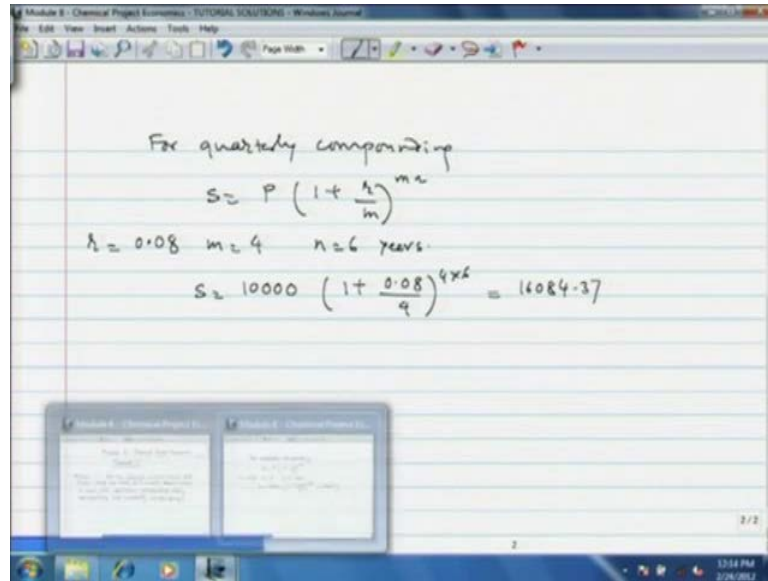 Module 8 - Chemical Project Economics - TUTORIAL SOLUTIONS - Windows Journal
File Edit View Insert Actions Tools Help
Page Width
For quarterly compounding
S = P (1 + r/m)^mn
r = 0.08 m = 4 n = 6 years.
S = 10000 (1 + 0.08/4)^4×6 = 16084.37
2/2
2
12:14 PM
2/24/2012